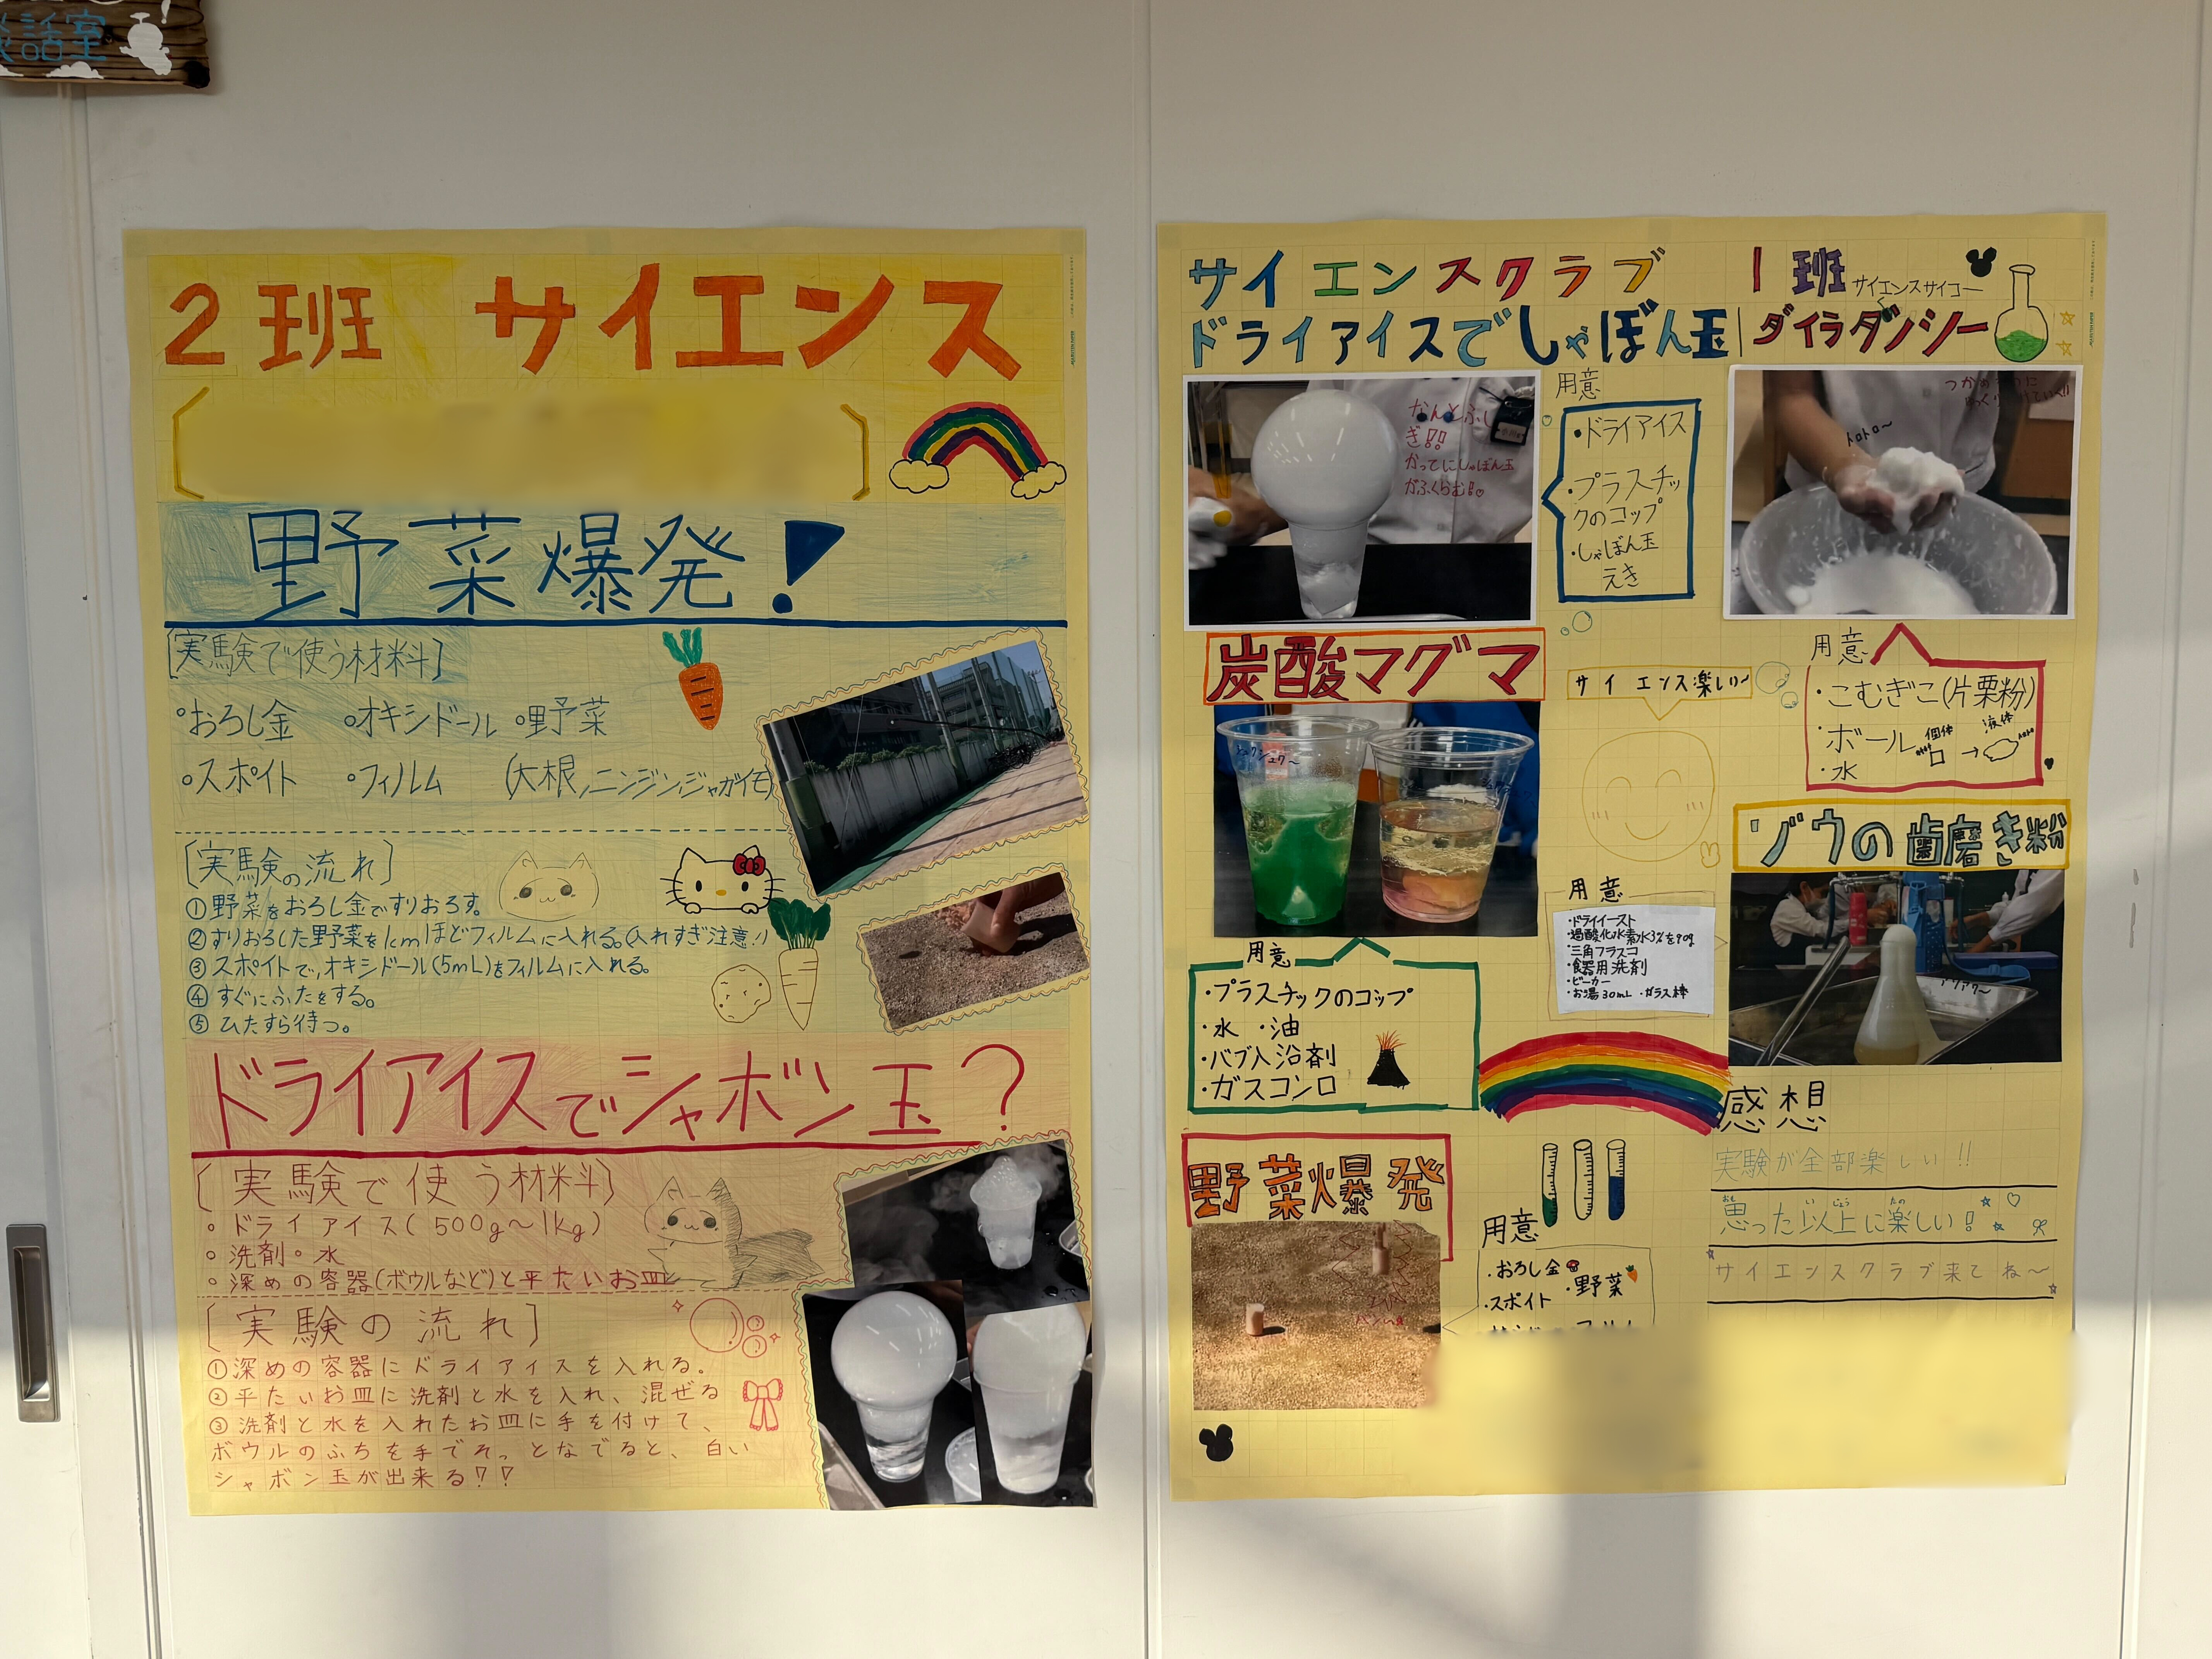 談話室
2班 サイエンス
野菜爆発!
[実験で使う材料]
○おろし金 ○オキシドール ○野菜
○スポイト ○フィルム (大根,ニンジン,ジャガイモ)
[実験の流れ]
①野菜をおろし金ですりおろす。
②すりおろした野菜を1cmほどフィルムに入れる。(入れすぎ注意!!)
③スポイトで,オキシドール(5mL)をフィルムに入れる。
④すぐにふたをする。
⑤ひたすら待つ。
ドライアイスでシャボン玉?
[実験で使う材料]
○ドライアイス(500g〜1kg)
○洗剤・水
○深めの容器(ボウルなど)と平たいお皿
[実験の流れ]
①深めの容器にドライアイスを入れる。
②平たいお皿に洗剤と水を入れ、混ぜる
③洗剤と水を入れたお皿に手を付けて、
ボウルのふちを手でそっとなでると、白い
シャボン玉が出来る!?
サイエンスクラブ 1班 サイエンスサイコー
ドライアイスでしゃぼん玉 ダイラタンシー
なんとふし
ぎ!!
かってにしゃぼん玉
がふくらむ!♡
用意
・ドライアイス
・プラスチッ
クのコップ
・しゃぼん玉
えき
トロトロ〜
用意
・こむぎこ(片栗粉)
・ボール
個体 → 液体
・水
炭酸マグマ
サイエンス楽しい〜
シュワシュワ〜
用意
・プラスチックのコップ
・水 ・油
・バブ入浴剤
・ガスコンロ
ゾウの歯磨き粉
用意
・ドライイースト
・過酸化水素水3%を90g
・三角フラスコ
・食器用洗剤
・ビーカー
・お湯30mL ・ガラス棒
野菜爆発
用意
・おろし金 ・野菜
・スポイト
感想
実験が全部楽しい!!
思った以上に楽しい!
サイエンスクラブ来てね〜